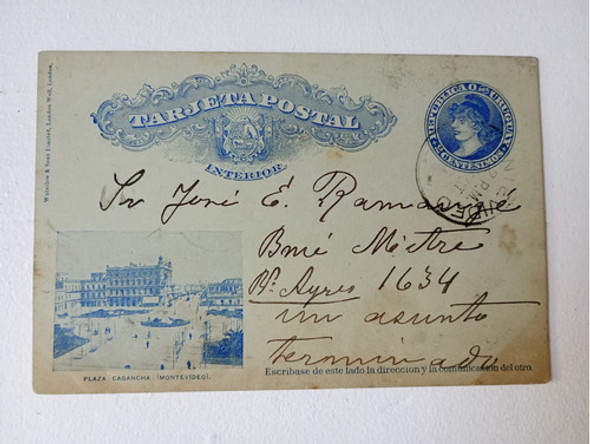 Waterlow & Sons Limited, London Wall, London.
TARJETA POSTAL
INTERIOR
REPUBLICA O. DEL URUGUAY
2 CENTESIMOS
Sr José E. 
Bmé Mitre
Bs. Ayres 1634
un asunto
terminado
PLAZA CAGANCHA (MONTEVIDEO).
Escribase de este lado la direccion y la comunicación del otro.